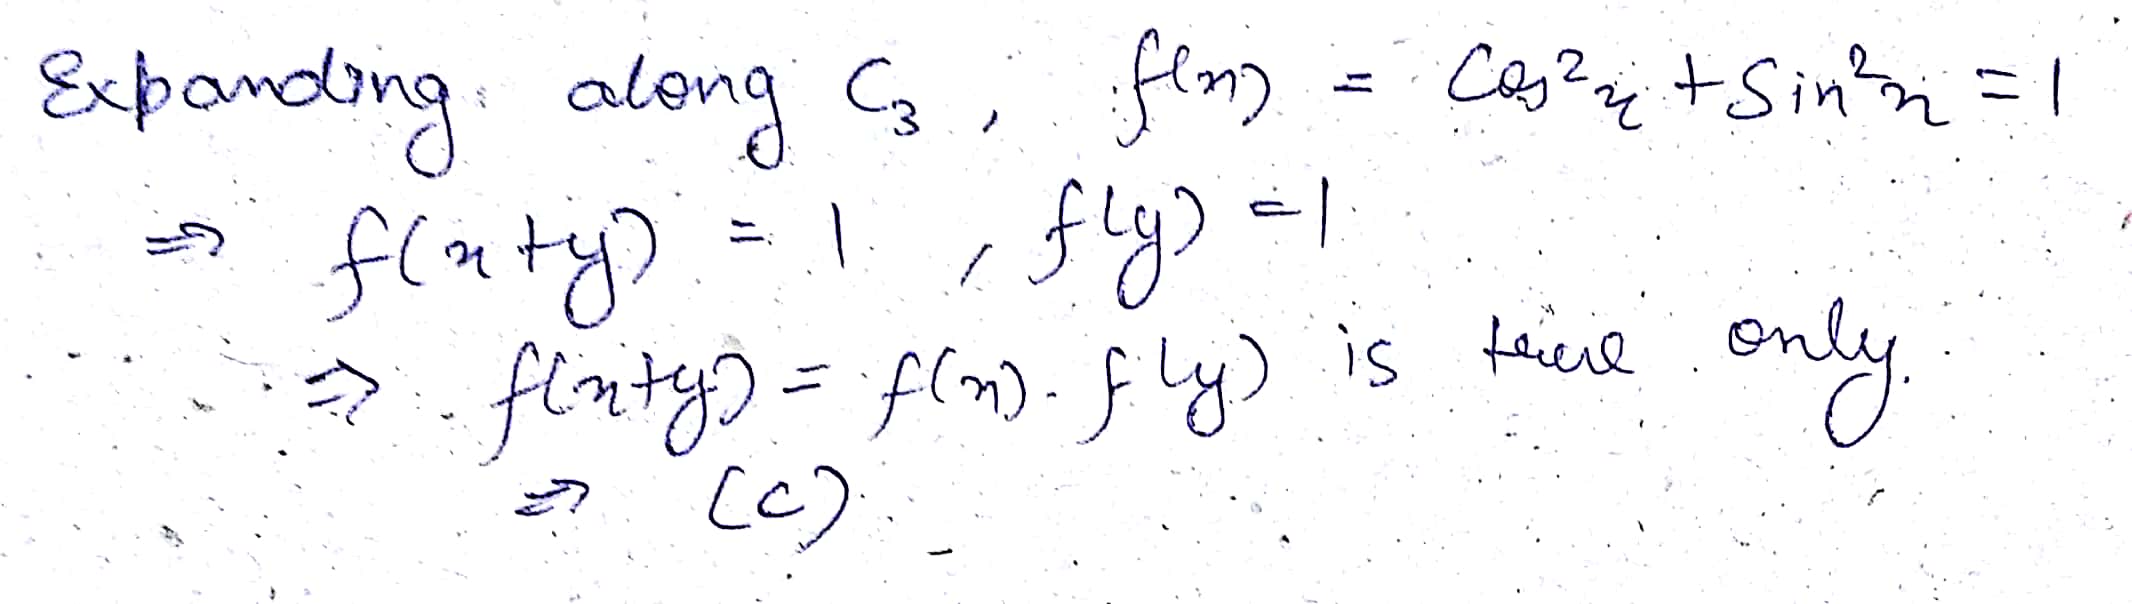 Expanding along C₃, f(x) = Cos²x + Sin²x = 1
⇒ f(x+y) = 1, f(y) = 1
⇒ f(x+y) = f(x). f(y) is true only.
⇒ (C)